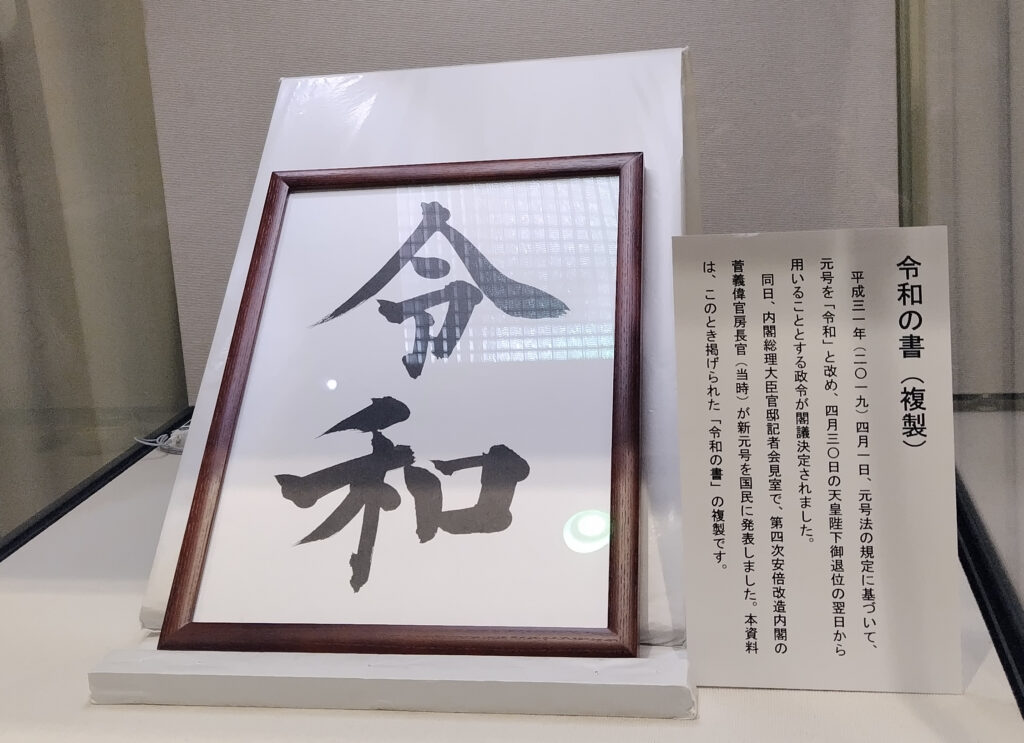 令和
令和の書（複製）
平成三一年（二〇一九）四月一日、元号法の規定に基づいて、
元号を「令和」と改め、四月三〇日の天皇陛下御退位の翌日から
用いることとする政令が閣議決定されました。
同日、内閣総理大臣官邸記者会見室で、第四次安倍改造内閣の
菅義偉官房長官（当時）が新元号を国民に発表しました。本資料
は、このとき掲げられた「令和の書」の複製です。